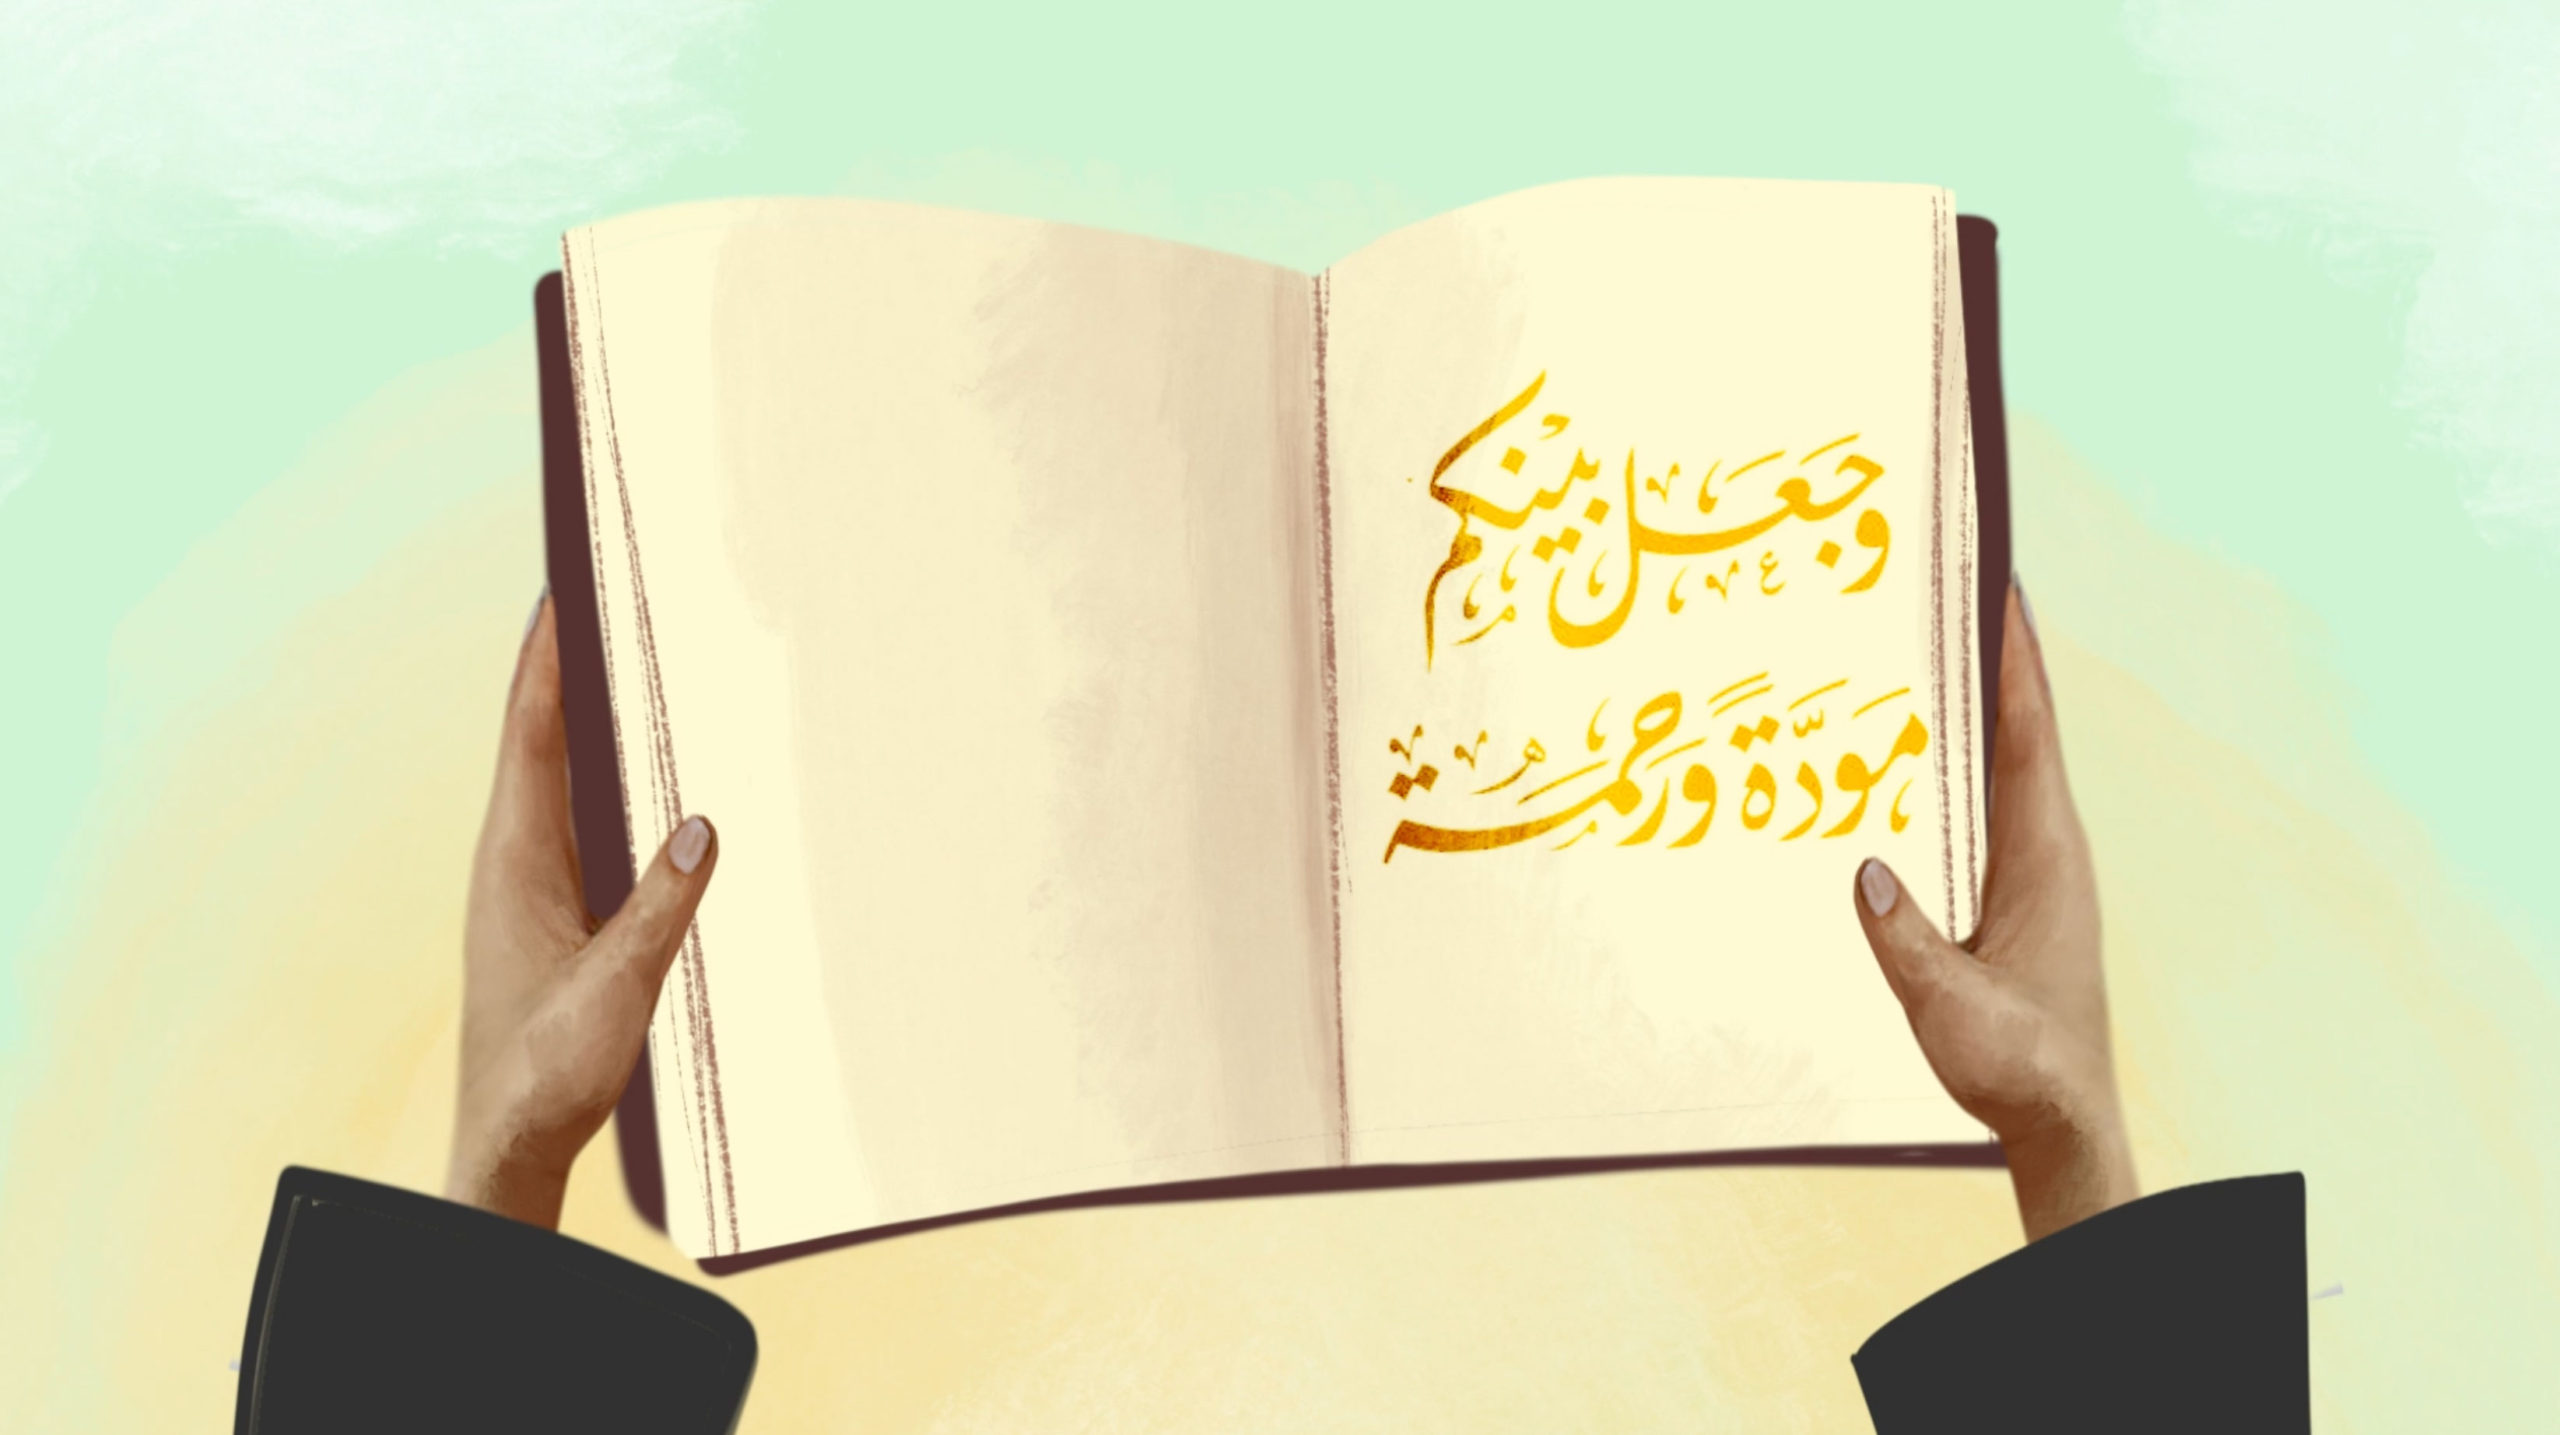 وَجَعَلَ بَيْنَكُم
مَوَدَّةً وَرَحْمَة